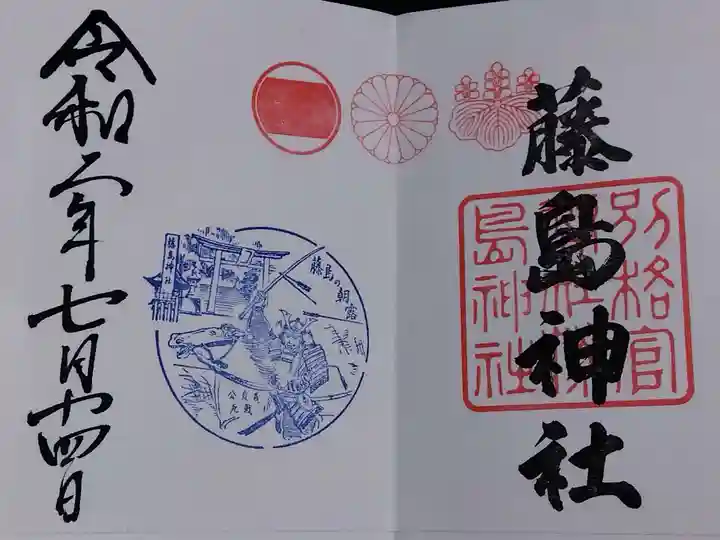 藤島神社
別格官
島神社
藤島神社
藤島の朝露
令和二年七月十四日